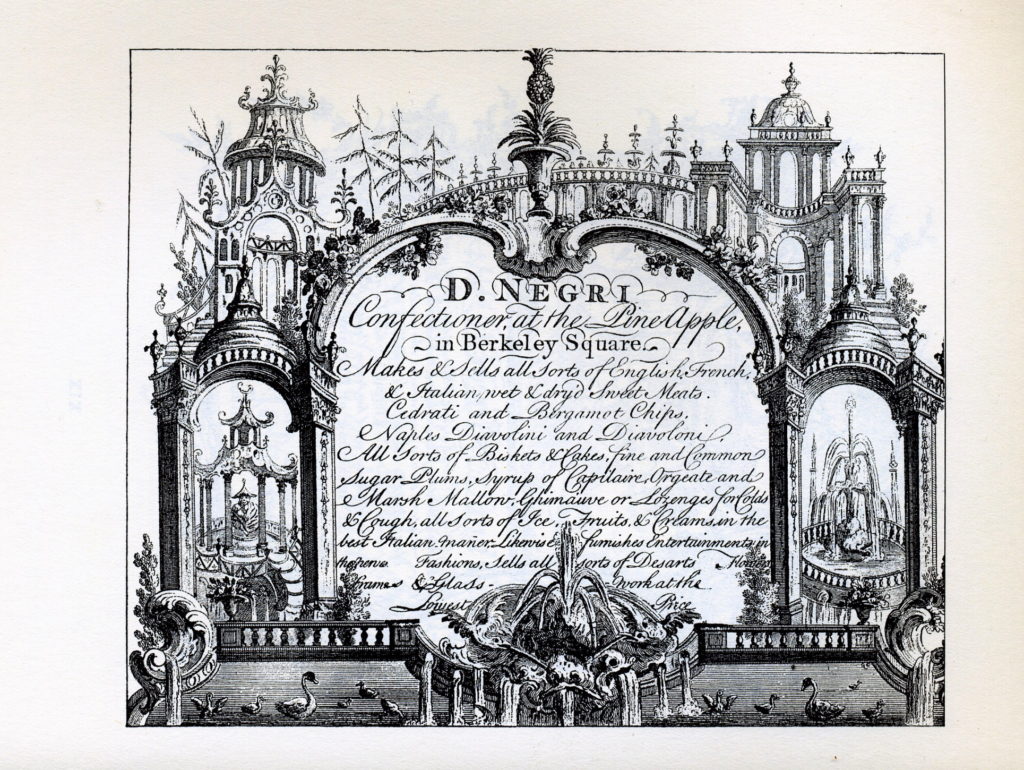 D. NEGRI
Confectioner, at the Pine Apple,
in Berkeley Square.
Makes & Sells all Sorts of English, French,
& Italian, wet & dry'd Sweet Meats.
Cedrati and Bergamot Chips,
Naples Diavolini and Diavoloni,
All Sorts of Biskets & Cakes, fine and Common
Sugar Plums, Syrup of Capilaire, Orgeate and
Marsh Mallow, Ghimauve or Lozenges for Colds
& Cough, all Sorts of Ice, Fruits, & Creams, in the
best Italian mañer, Likewise furnishes Entertainments in
Fashions, Sells all sorts of Desarts Flower
frames & Glass- work at the
Lowest Price